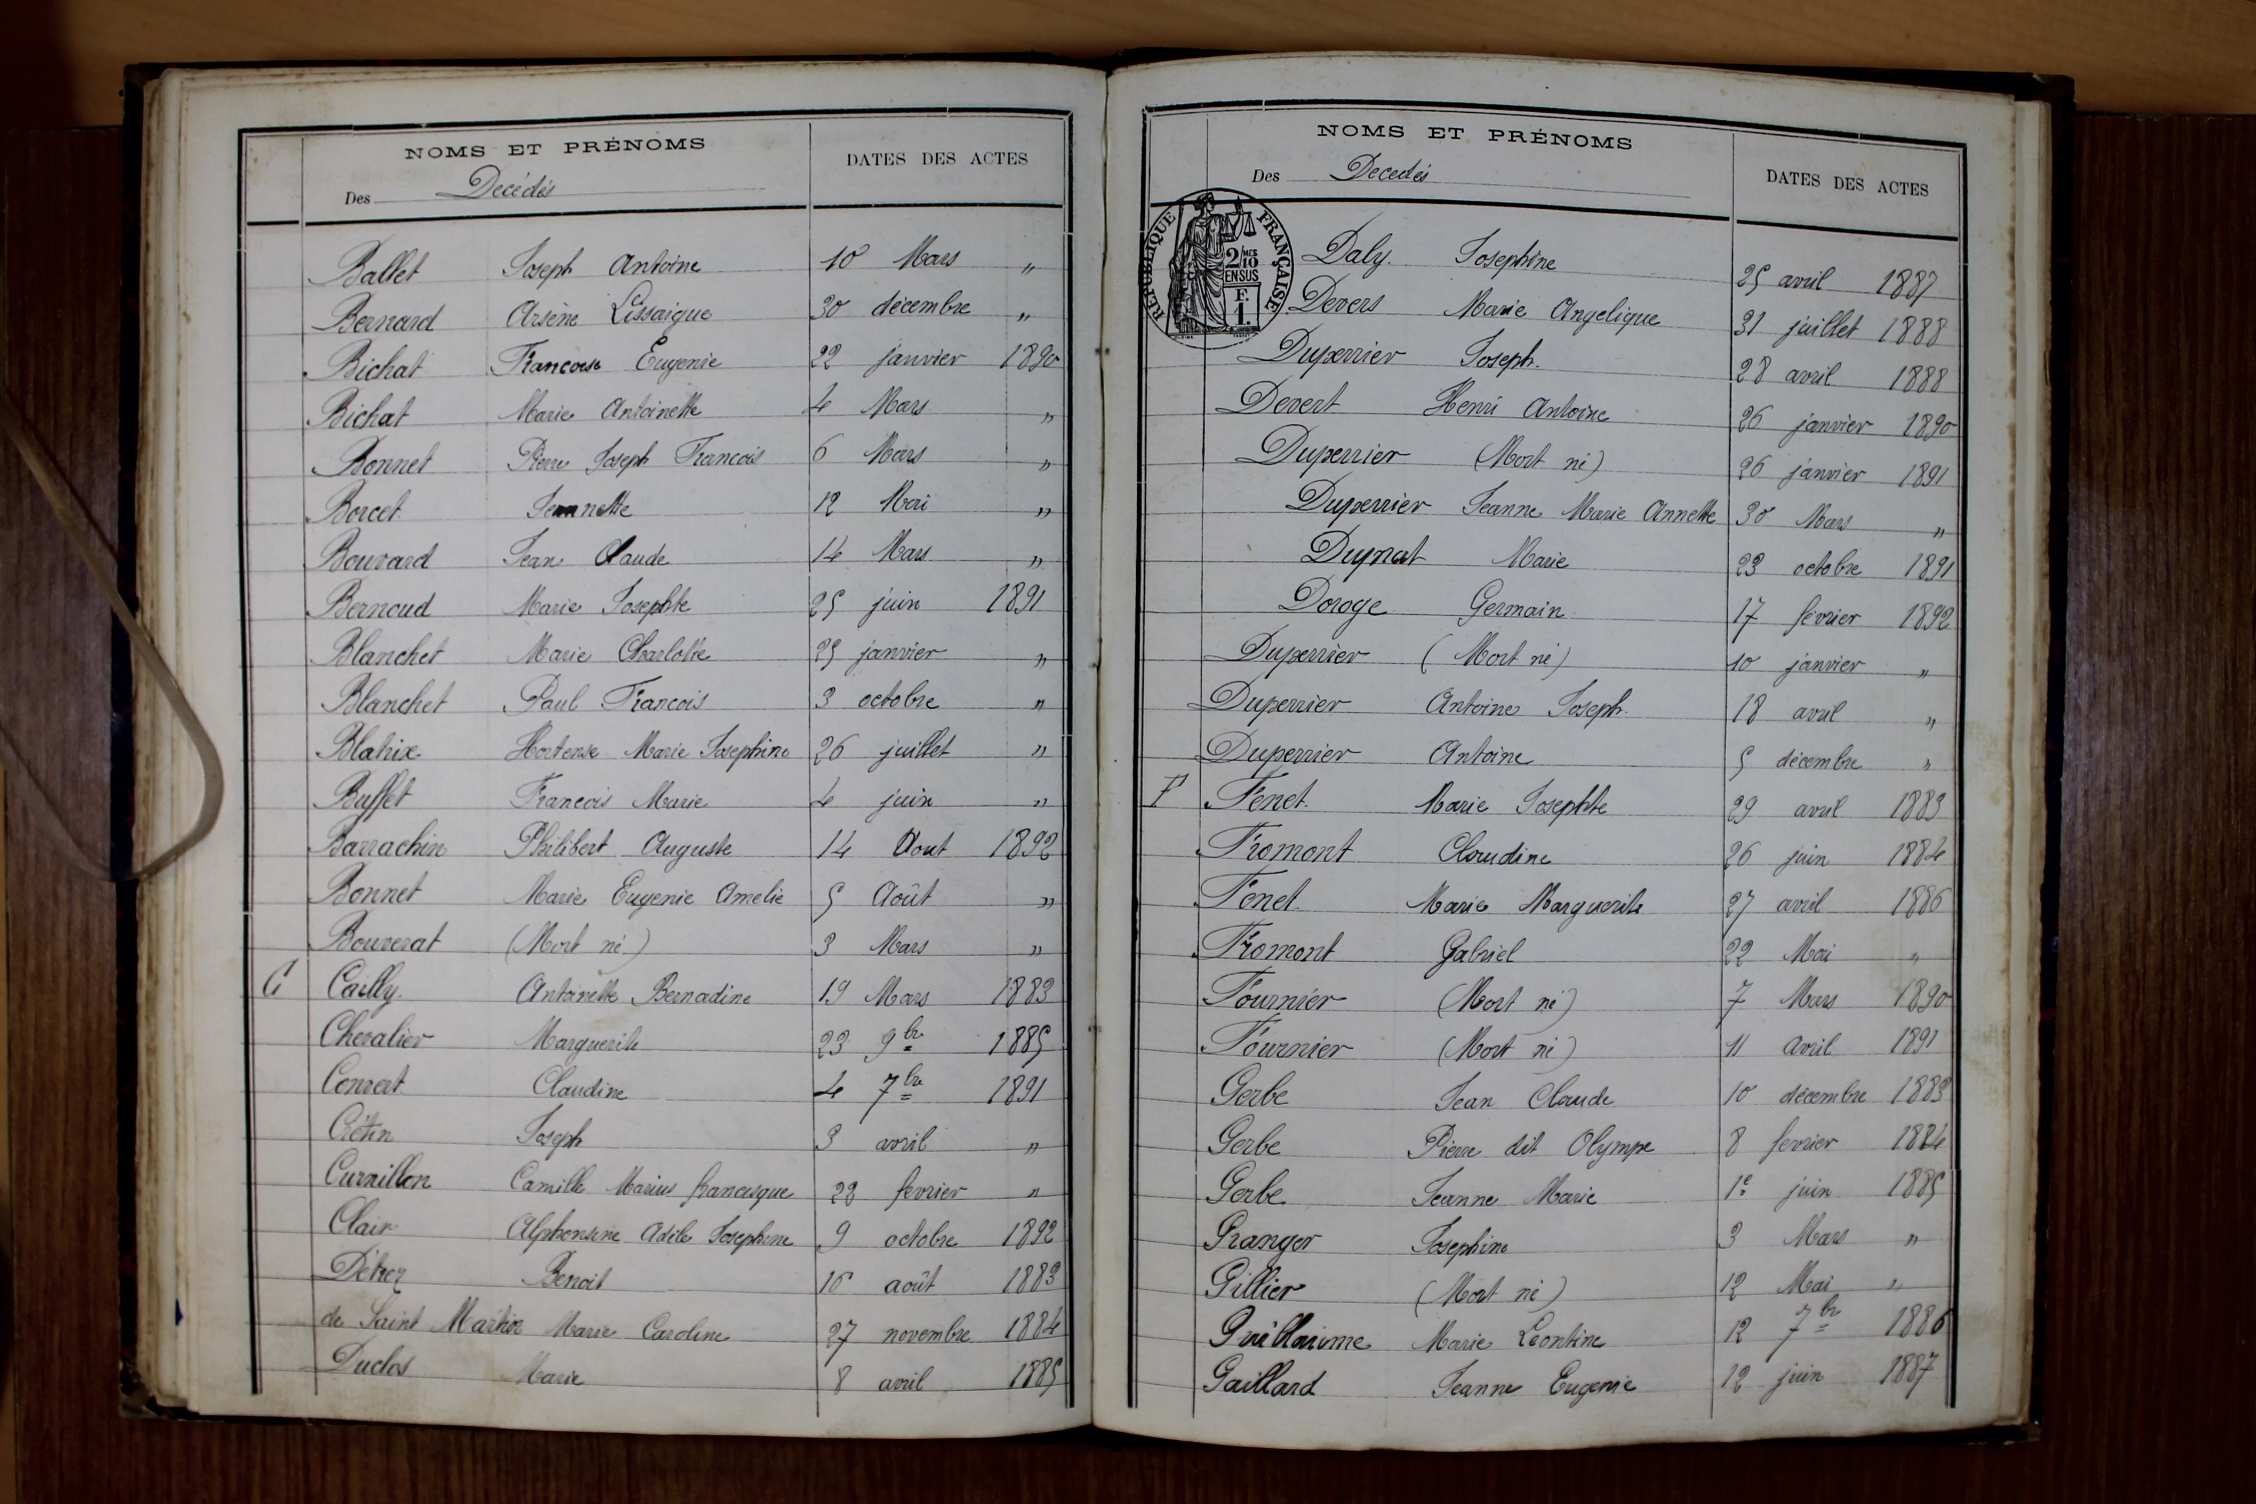 NOMS ET PRÉNOMS
DATES DES ACTES
Des Decédés
Ballet Joseph Antoine 10 Mars "
Bernard Arsène Lissaigue 30 décembre "
Bichat Francoise Eugenie 22 janvier 1890
Bichat Marie Antoinette 4 Mars "
Bonnet Pierre Joseph Francois 6 Mars "
Borcet Jeannette 12 Mai "
Bouvard Jean Claude 14 Mars "
Bernoud Marie Josephte 25 juin 1891
Blanchet Marie Charlotte 25 janvier "
Blanchet Paul Francois 3 octobre "
Blatrix Hortense Marie Josephine 26 juillet "
Buffet Francois Marie 4 juin "
Barrachin Philibert Auguste 14 Aout 1892
Bonnet Marie Eugenie Amelie 5 Août "
Bouverat (Mort né) 3 Mars "
C Cailly Antoinette Bernadine 19 Mars 1883
Chevalier Marguerite 23 9bre 1885
Convert Claudine 4 7bre 1891
Crétin Joseph 3 avril "
Curnillon Camille Marius francisque 22 fevrier "
Clair Alphonsine Adèle Josephine 9 octobre 1892
Détrez Benoit 16 août 1883
de Saint Martin Marie Caroline 27 novembre 1884
Duclos Marie 8 avril 1885
NOMS ET PRÉNOMS
DATES DES ACTES
Des Decedés
RÉPUBLIQUE FRANÇAISE
2/10 EN SUS
F. 1.
Daly Josephine 25 avril 1887
Devers Marie Angelique 31 juillet 1888
Duperrier Joseph 28 avril 1888
Devert Henri Antoine 26 janvier 1890
Duperrier (Mort né) 26 janvier 1891
Duperrier Jeanne Marie Annette 30 Mars "
Dupnat Marie 23 octobre 1891
Doroge Germain 17 février 1892
Duperrier (Mort né) 10 janvier "
Duperrier Antoine Joseph 18 avril "
Duperrier Antoine 5 décembre "
F Fenet Marie Josephte 29 avril 1883
Fromont Claudine 26 juin 1884
Fenet Marie Marguerite 27 avril 1886
Fromont Gabriel 22 Mai "
Fournier (Mort né) 7 Mars 1890
Fournier (Mort né) 11 Avril 1891
Gerbe Jean Claude 10 décembre 1883
Gerbe Pierre dit Olympe 8 fevrier 1884
Gerbe Jeanne Marie 1e juin 1885
Granger Josephine 3 Mars "
Gillier (Mort né) 12 Mai "
Guillaume Marie Leontine 12 7bre 1886
Gaillard Jeanne Eugenie 12 juin 1887